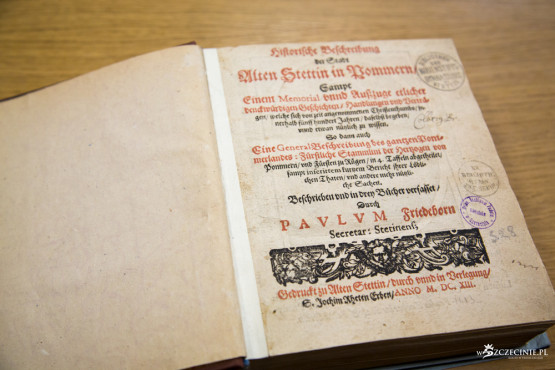 Historische Beschreibung
der Stadt
Alten Stettin in Pommern/
Sampt
Einem Memorial vnnd Auszzuge etlicher
denckwürdigen Geschichten/ Handlungen vnd Verträ-
gen/ welche sich von zeit angenommenen Christenthumbs/ in-
nerhalb fünff hundert Jahren/ daselbst begeben/
vnnd etwan nützlich zu wissen.
So dann auch
Eine General Beschreibung des gantzen Pom-
merlandes: Fürstliche Stammlini der Hertzogen von
Pommern/ vnd Fürsten zu Rügen/ in 4. Taffeln abgetheilet/
sampt inserirtem kurtzem Bericht ihrer Löbli-
chen Thaten/ vnd andere mehr nützli-
che Sachen.
Beschrieben vnd in drey Bücher verfasset/
Durch
PAVLVM Friedeborn
Secretar: Stetinens;
Gedruckt zu Alten Stettin/ durch vnnd in Verlegung/
S. Jochim Rheten Erben/ ANNO M. DC. XIII.
528
wSZCZECINIE.PL